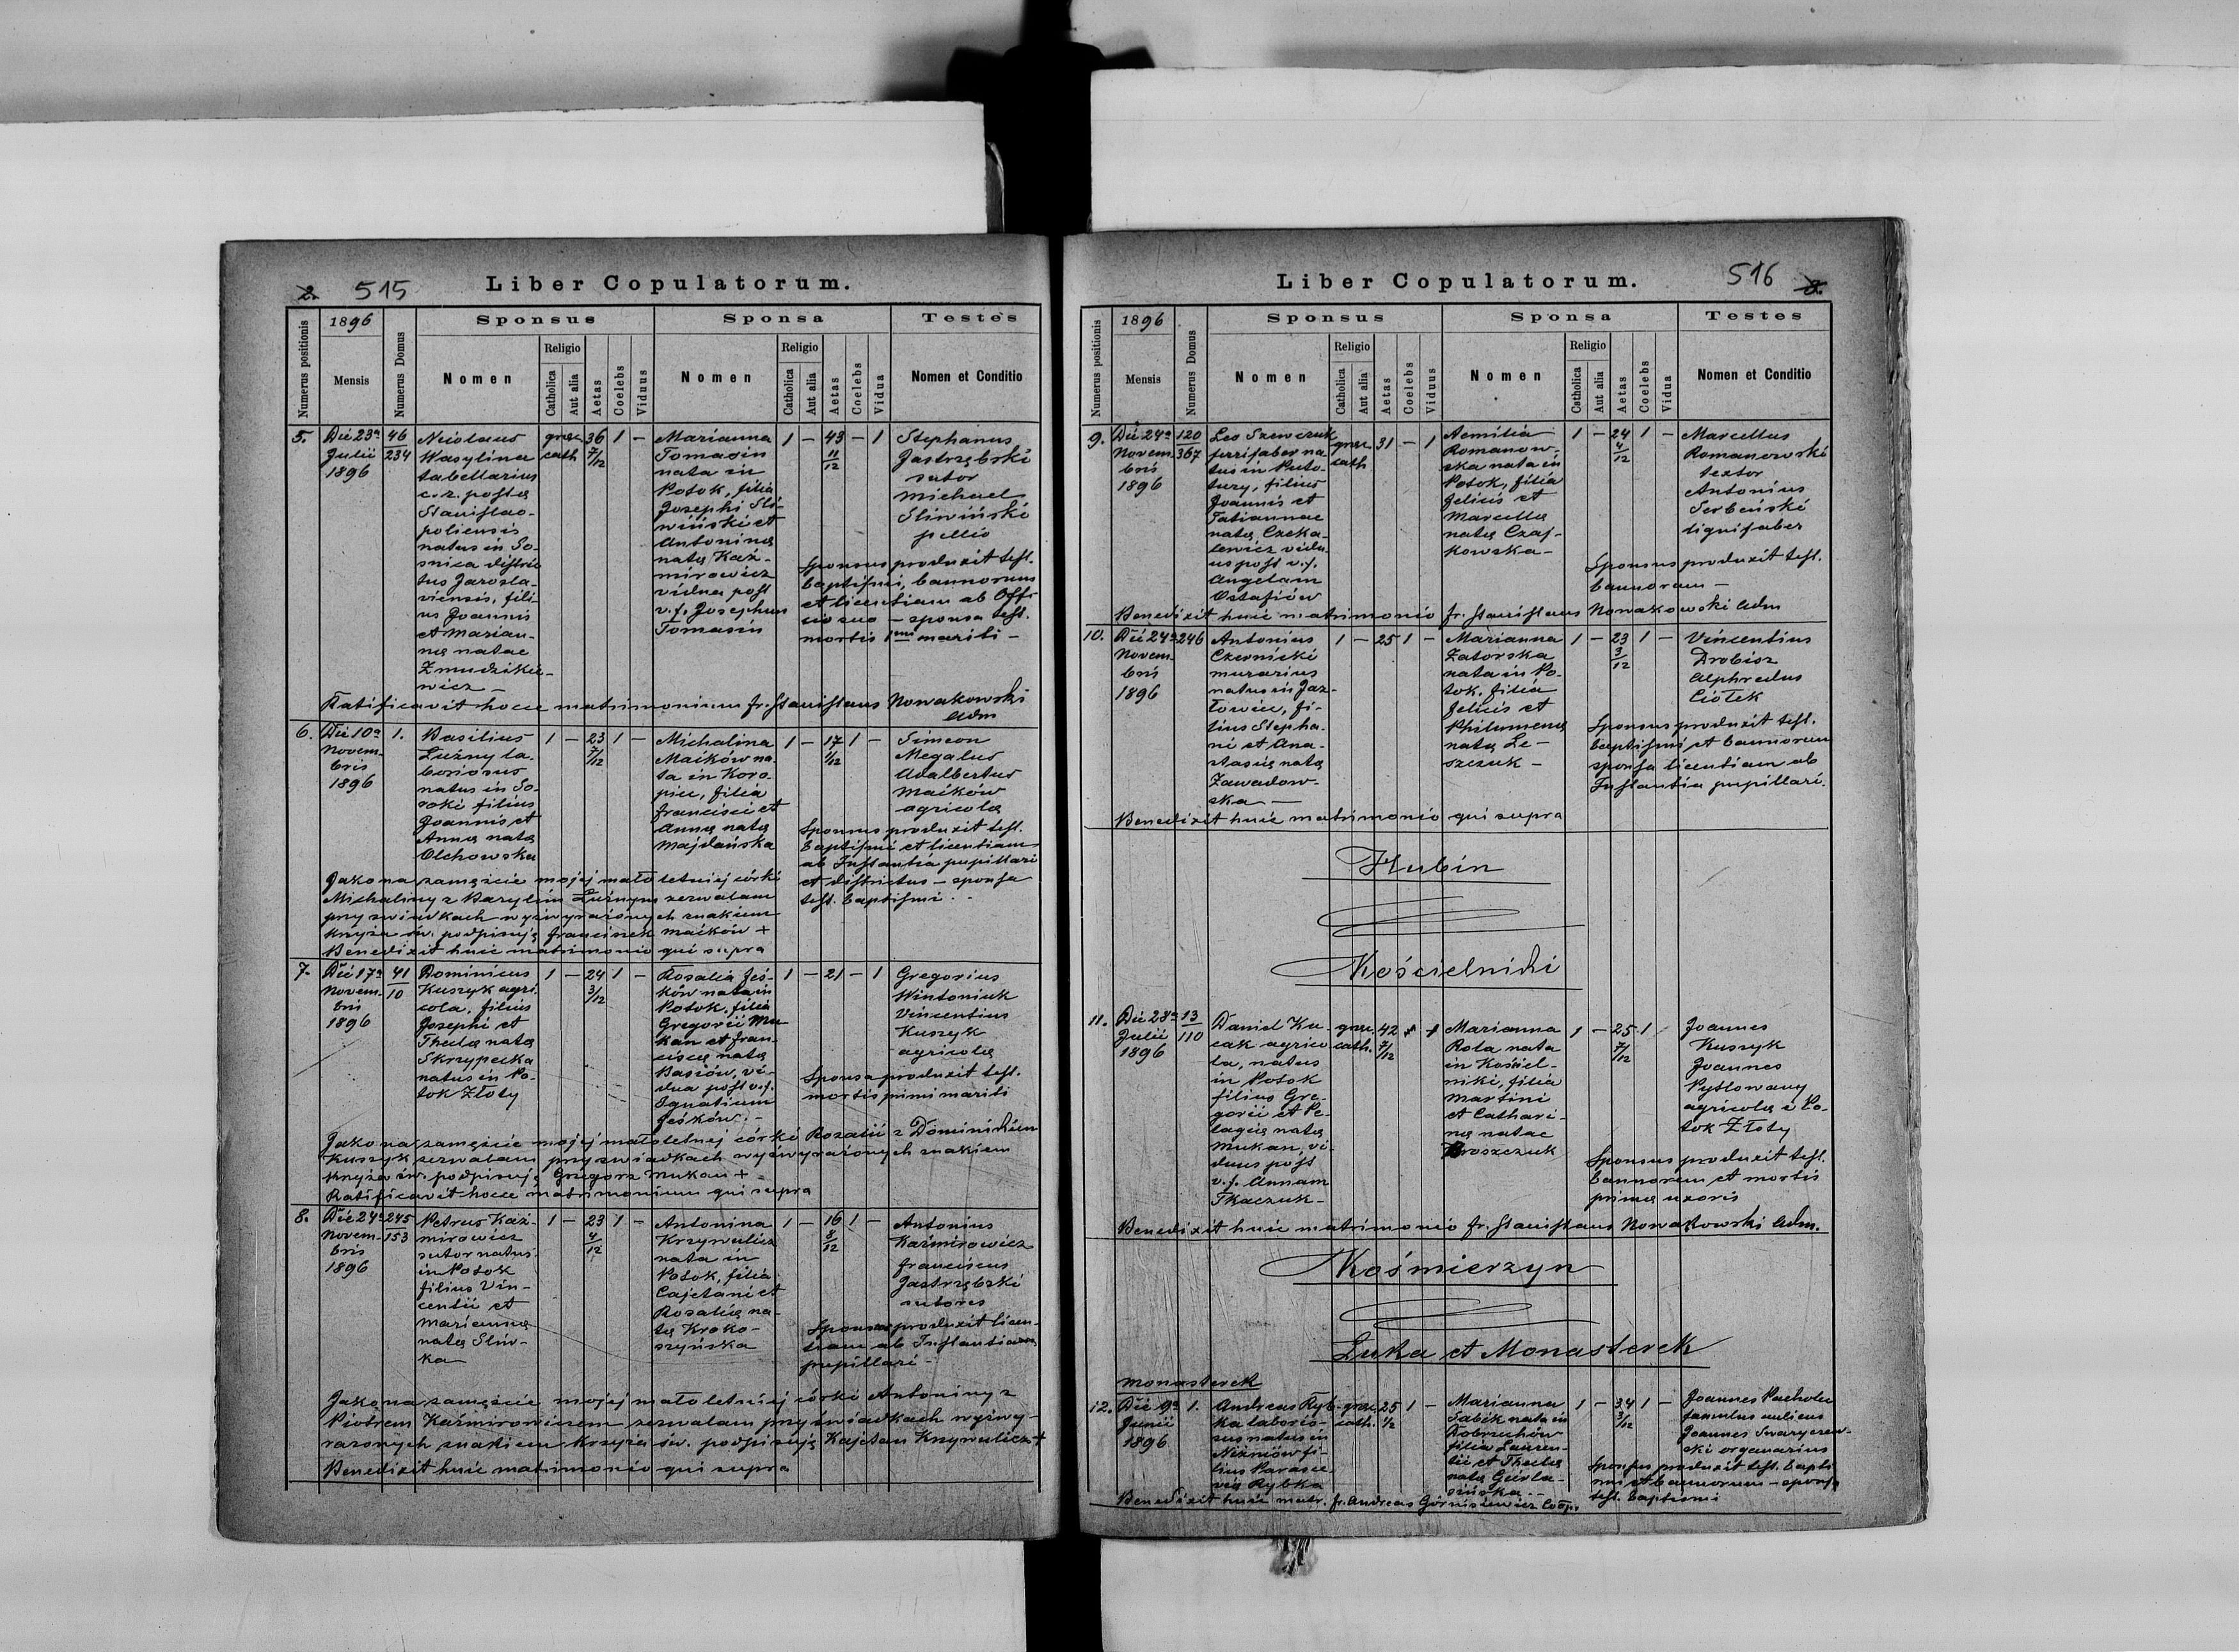 2. 515 Liber Copulatorum.
Numerus positionis
1896
Mensis
Numerus Domus
Sponsus
Nomen
Religio
Catholica
Aut alia
Aetas
Coelebs
Viduus
Sponsa
Nomen
Religio
Catholica
Aut alia
Aetas
Coelebs
Vidua
Testes
Nomen et Conditio
5.
Die 23a
Julii
1896
46
234
Nicolaus
Wasylina
tabellarius
c. r. posta
Stanislao-
poliensis
natus in So-
snica distric
tus Jarosla-
viensis, fili-
us Joannis
et Marian-
na natae
Zmudzikie-
wicz –
graec
cath
36
7/12
1
–
Marianna
Tomasin
nata in
Potok, filia
Josephi Sli-
wiński et
Antonina
nata Kaź-
mirowicz
vidua post
v. f. Josephum
Tomasin
1
–
43
11
12
–
1
Stephanus
Jastrzębski
sutor
Michael
Sliwiński
pellio
Sponsus produxit test.
baptismi, bannorum
et licentiam ab Offi
cio suo – sponsa test.
mortis 1mi mariti –
Ratificavit hocce matrimonium fr. Stanislaus Nowakowski
Adm
6.
Die 10a
Novem-
bris
1896
1.
Basilius
Luźny la-
boriosus
natus in So-
roki filius
Joannis et
Anna nata
Olchowska
1
–
23
7/12
1
–
Michalina
Maików na-
ta in Koro-
piec, filia
Francisci et
Anna nata
Majdańska
1
–
17
1/12
1
–
Simeon
Megalus
Adalbertus
Maików
agricola
Sponsus produxit test.
baptismi et licentiam
ab Instantia pupillari
et districtus – sponsa
test. baptismi . –
Jako na zamęście mojej małoletniej córki
Michaliny z Bazylim Luźnym zezwalam
przy swiadkach wyżwyrażonych znakiem
krzyża św. podpisuję Franciszek Maików +
Benedixit huic matrimonio qui supra
7.
Die 17a
Novem-
bris
1896
41
10
Dominicus
Kuszyk agri-
cola, filius
Josephi et
Thecla nata
Skrzypecka
natus in Po-
tok Złoty
1
–
24
3/12
1
–
Rosalia Feś-
ków nata in
Potok, filia
Gregorii Mu
kan et Fran-
cisca nata
Basiów, vi-
dua post v. f.
Ignatium
Feśków. –
1
–
21
–
1
Gregorius
Wintoniuk
Vincentius
Kuszyk
agricola
Sponsa produxit test.
mortis primi mariti
Jako na zamęście mojej małoletniej córki Rozalii z Dominikiem
Kuszyk zezwalam przy swiadkach wyżwyrażonych znakiem
krzyża św. podpisuję Gregorz Mukan +
Ratificavit hocce matrimonium qui supra
8.
Die 24a
Novem-
bris
1896
245
153
Petrus Kaź-
mirowicz
sutor natus
in Potok
filius Vin-
centii et
Marianna
nata Sliw-
ka
1
–
23
4
12
1
–
Antonina
Krzywulicz
nata in
Potok, filia
Cajetani et
Rosalia na-
ta Kroko-
szyńska
1
–
16
8
12
1
–
Antonius
Kaźmirowicz
Franciscus
Jastrzębski
sutores
Sponsa produxit licen-
tiam ab Instantia
pupillari –
Jako na zamęście mojej małoletniej córki Antoniny z
Piotrem Kaźmirowiczem zezwalam przy świadkach wyżwy-
rażonych znakiem krzyża św. podpisuję Kajetan Krzywulicz +
Benedixit huic matrimonio qui supra
Liber Copulatorum. 516
Numerus positionis
1896
Mensis
Numerus Domus
Sponsus
Nomen
Religio
Catholica
Aut alia
Aetas
Coelebs
Viduus
Sponsa
Nomen
Religio
Catholica
Aut alia
Aetas
Coelebs
Vidua
Testes
Nomen et Conditio
9.
Die 24a
Novem-
bris
1896
120
367
Leo Szewczuk
ferrifaber na
tus in Puto-
tury, filius
Joannis et
Tatiannae
nata Czeka-
lewicz vidu
us post v. f.
Angelam
Ostafiów
graec
cath
31
–
1
Aemilia
Romanow-
ska nata in
Potok, filia
Felicis et
Marcella
nata Czaj-
kowska –
1
–
24
4
12
1
–
Marcellus
Romanowski
textor
Antonius
Serbeński
lignifaber
Sponsus produxit test.
bannorum –
Benedixit huic matrimonio fr. Stanislaus Nowakowski Adm
10.
Die 24a
Novem-
bris
1896
246
Antonius
Czernicki
murarius
natus in Jaz-
łowiec, fi-
lius Stepha-
ni et Ana-
stasia nata
Zawadow-
ska –
1
–
25
1
–
Marianna
Zatorska
nata in Po-
tok, filia
Felicis et
Philumena
nata Le-
szczuk –
1
–
23
3
12
1
–
Vincentius
Drobisz
Alphredus
Ciołek
Sponsus produxit test.
baptismi et bannorum
sponsa licentiam ab
Instantia pupillari.
Benedixit huic matrimonio qui supra
Hubin
Kościelniki
11.
Die 28a
Julii
1896
13
110
Daniel Ku-
cak agrico
la, natus
in Potok
filius Gre-
gorii et Pe-
lagia nata
Mukan, vi-
duus post
v. f. Annam
Tkaczuk –
graec.
cath.
42
7/12
1
Marianna
Rola nata
in Kościel-
niki, filia
Martini
et Cathari-
na natae
Broszczuk
1
–
25
7/12
1
Joannes
Kuszyk
Joannes
Pytlowany
agricola z Po-
tok Złoty
Sponsus produxit test.
bannorum et mortis
prima uxoris
Benedixit huic matrimonio fr. Stanislaus Nowakowski Adm.
Kośmierzyn
Łuka et Monasterek
Monasterek
12.
Die 9a
Junii
1896
1.
Andreas Ryb-
ka laborio-
sus natus in
Niżniów fi-
lius Parasce-
via Rybka
graec.
cath.
25
1/2
1
–
Marianna
Tabik nata in
Dobruchów
filia Lauren-
tii et Thecla
nata
1
–
34
3/12
1
–
Joannes Pacholu
famulus aulicus
Joannes Swaryczew-
ski organarius
Sponsus produxit test. bapti
smi et bannorum – sponsa
test. baptismi
Benedixit huic matr. fr. Andreas Górnisiewicz Coop.